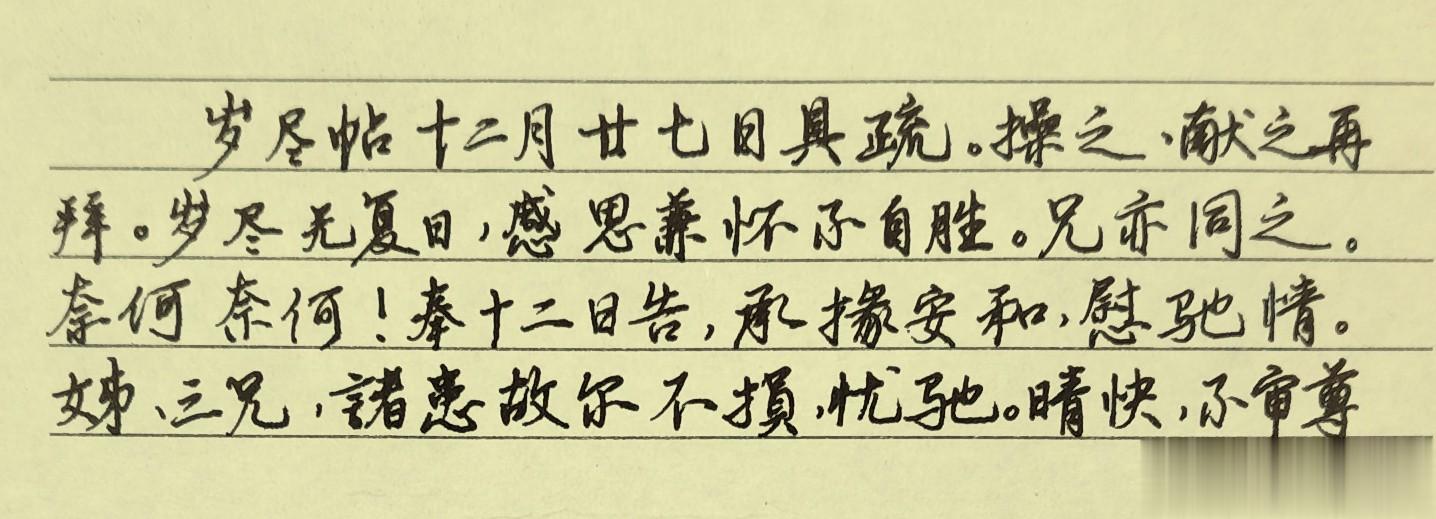 岁尽帖十二月廿七日具疏。操之、献之再
拜。岁尽无复日，感思兼怀不自胜。兄亦同之。
奈何奈何！奉十二日告，承掾安和，慰驰情。
姊、三兄，諸患故尔不損，忧驰。晴快，不审尊